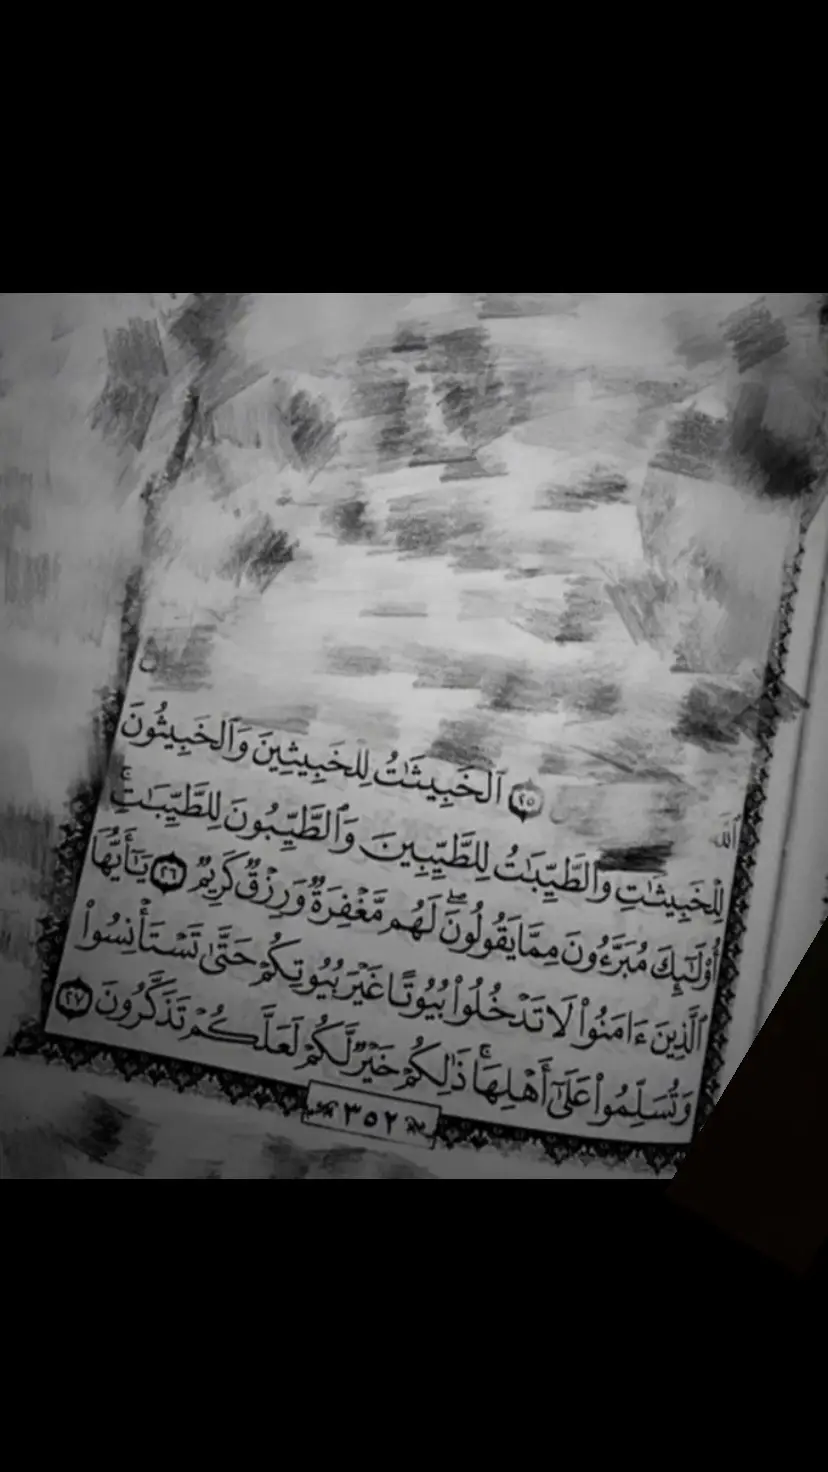 ٱللَّه
۝٢٥ ٱلۡخَبِيثَٰتُ لِلۡخَبِيثِينَ وَٱلۡخَبِيثُونَ
لِلۡخَبِيثَٰتِۖ وَٱلطَّيِّبَٰتُ لِلطَّيِّبِينَ وَٱلطَّيِّبُونَ لِلطَّيِّبَٰتِۚ
أُوْلَٰٓئِكَ مُبَرَّءُونَ مِمَّا يَقُولُونَۖ لَهُم مَّغۡفِرَةٞ وَرِزۡقٞ كَرِيمٞ ۝٢٦ يَٰٓأَيُّهَا
ٱلَّذِينَ ءَامَنُواْ لَا تَدۡخُلُواْ بُيُوتًا غَيۡرَ بُيُوتِكُمۡ حَتَّىٰ تَسۡتَأۡنِسُواْ
وَتُسَلِّمُواْ عَلَىٰٓ أَهۡلِهَاۚ ذَٰلِكُمۡ خَيۡرٞ لَّكُمۡ لَعَلَّكُمۡ تَذَكَّرُونَ ۝٢٧
٣٥٢